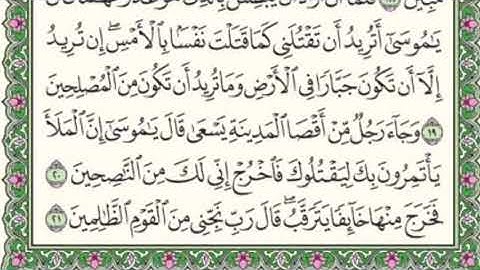 مُّبِينٌ ١٨ فَلَمَّآ أَنْ أَرَادَ أَن يَبْطِشَ بِٱلَّذِى هُوَ عَدُوٌّ لَّهُمَا قَالَ
يَٰمُوسَىٰٓ أَتُرِيدُ أَن تَقْتُلَنِى كَمَا قَتَلْتَ نَفْسًۢا بِٱلْأَمْسِ ۖ إِن تُرِيدُ
إِلَّآ أَن تَكُونَ جَبَّارًا فِى ٱلْأَرْضِ وَمَا تُرِيدُ أَن تَكُونَ مِنَ ٱلْمُصْلِحِينَ
١٩ وَجَآءَ رَجُلٌ مِّنْ أَقْصَا ٱلْمَدِينَةِ يَسْعَىٰ قَالَ يَٰمُوسَىٰٓ إِنَّ ٱلْمَلَأَ
يَأْتَمِرُونَ بِكَ لِيَقْتُلُوكَ فَٱخْرُجْ إِنِّى لَكَ مِنَ ٱلنَّٰصِحِينَ ٢٠
فَخَرَجَ مِنْهَا خَآئِفًا يَتَرَقَّبُ ۖ قَالَ رَبِّ نَجِّنِى مِنَ ٱلْقَوْمِ ٱلظَّٰلِمِينَ ٢١